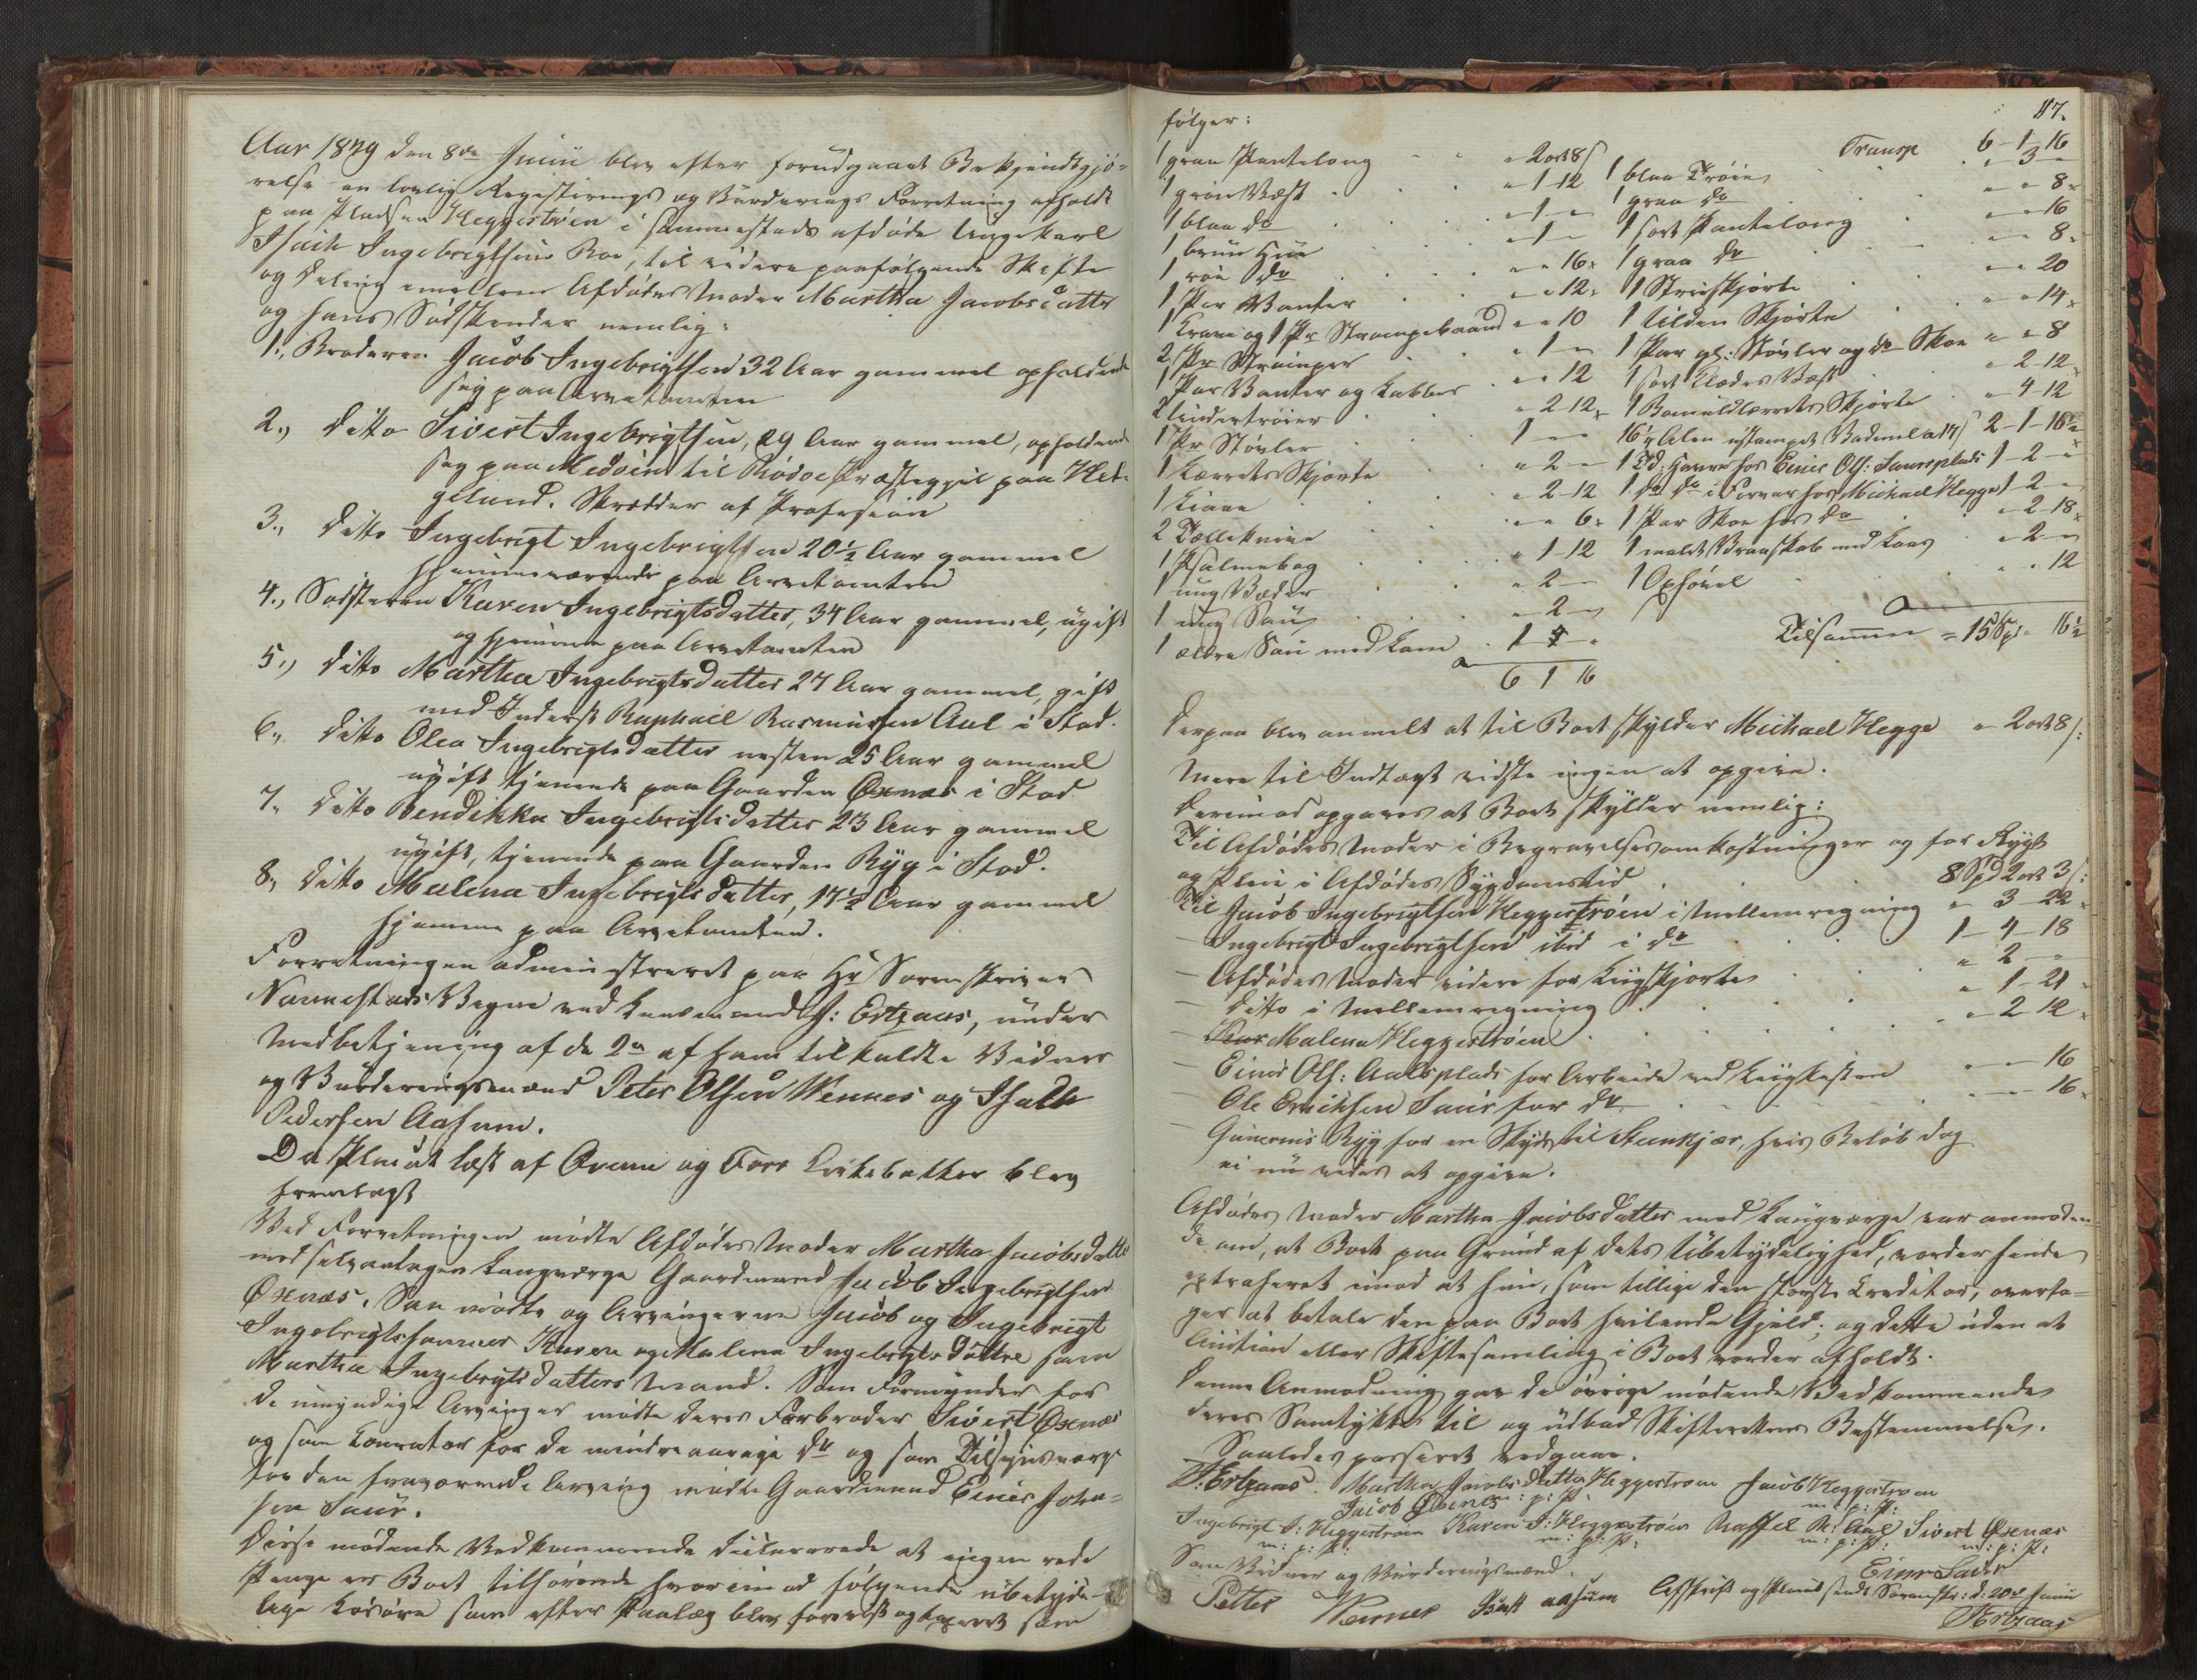 Aar 1829 den 8de Junii blev efter forudgaaet Bekjendtgjø-
relse en lovlig Registerings og Vurderings Forretning afholdt
paa Pladsen Heggestrøen i sammesteds afdøde Ungekarl
Isach Ingebrigtsens Boe, til videre paafølgende Skifte
og Deling imellem Afdødes Moder Martha Jacobsdatter
og hans Sødskender nemlig:
1., Broderen Jacob Ingebrigtsen 32 Aar gammel opholdende
sig paa Arvetomten
2., Ditto Sivert Ingebrigtsen, 29 Aar gammel, opholdende
sig paa til Rødøe Præstegjel paa Hel-
geland. Skrædder af Profession
3., Ditto Ingebrigt Ingebrigtsen 20½ Aar gammel
hjemmeværende paa Arvetomten
4., Søsteren Karen Ingebrigtsdatter, 34 Aar gammel, ugift
og hjemme paa Arvetomten
5., Ditto Martha Ingebrigtsdatter 27 Aar gammel, gift
med Inderst Raphael Rasmussen Aal i Stod.
6., Ditto Olea Ingebrigtsdatter nesten 25 Aar gammel
ugift tjenende paa Gaarden Øxnæs i Stod
7. Ditto Bendikka Ingebrigtsdatter 23 Aar gammel
ugift, tjenende paa Gaarden Ryg i Stod.
8, Ditto Malena Ingebrigtsdatter, 17½ Aar gammel
hjemme paa Arvetomten.
Forretningen administreret paa Hr Sorenskriver
Nannestads Vegne ved Lensmand J: Ertzaas, under
Medbetjening af de 2de af ham tilkaldte Vidner
og Vurderingsmænd Peter Olsen Wennes og Isach
Pedersen Aasum.
Da Placat læst af Qvam og For Kirkebakker blev
fremlagt
Ved Forretningen mødte Afdødes Moder Martha Jacobsdatter
med selvantagen Laugværge Gaardmand Jacob Ingebrigtsen
Øxnæs. Saa mødte og Arvingerne Jacob og Ingebrigt
Ingebrigtssønner Karen og Malena Ingebrigtsdøttre samt
Martha Ingebrigtsdatters Mand. Som Formynder for
de umyndige Arvinger mødte deres Farbroder Sivert Øxnæs
og som Kourator for de mindreaarige Do og som Tilsynsværge
for den fraværende Arving mødte Gaardmand Einer John-
sen Saur.
Disse mødende Vedkommende declarerede at ingen rede
Penge er Boet tilhørende hvorimod følgende ubetyde-
lige Løsøre som efter Paalæg blev forevist og taxeret som
117.
følger:
1 graa Pantelong " 2 ort 8 s
1 grøn Vest " 1 12
1 blaa Do " 1 "
1 bruun Hue " 1 "
1 røe Do " " 16.
1 Par Vanter " " 12.
1 Krave og 1 Pr Strømpebaand " " 10
2 Pr Strømper " 1 "
1 Par Vanter og Labber " " 12
2 Undertrøier " 2 12
1 Pr Støvler 1 " "
1 Lærrets Skjorte " 2 "
1 Kiste " 2 12
2 Tællekniver " " 6.
1 Psalmebog " 1 12
1 ung Væder " 2 "
1 ung Sau " 2 "
1 ældre Sau med Lam 1 "
6 1 16
Transp 6 - 1 16
1 blaa Trøie " 3 "
1 graa Do " " 8.
1 sort Pantelong " " 16
1 graa Do " " 8.
1 Strieskjorte " " 20
1 Ulden Skjorte " " 14.
1 Par gl: Støvler og Do Skoe " " 8
1 sort Klædes Vest " 2 12
1 Bomuldlærrets Skjorte " 4 12
16½ Alen ustampet Vadmel a 14 s 2 - 1 - 16½
1 Td: Havre hos Einer Ols: Saursplads 1 - 2 -
1 Do Do i Forvar hos Michael Hegge 1 - 2 -
1 Par Skoe hos Do " 2 18.
1 malet Vraaskab med Laas " 2 "
1 Ophøvel " " 12
Tilsammen = 15 Spd " 16½
Derpaa blev anmelt at til Boet skylder Michael Hegge " 2 ort 8 s:
Mere til Indtægt vidste ingen at opgive.
Derimod opgaves at Boet skylder nemlig:
Til Afdødes Moder i Begravelsesomkostninger og for Rygt
og Pleie i Afdødes Sygdomstid 8 Spd 2 ort 3 s:
Til Jacob Ingebrigtsen Heggestrøen i Mellemregning " 3 - 22
— Ingebrigt Ingebrigtsen ibid i Do 1 - 4 - 18
— Afdødes Moder videre for Liigskjorte " 2 "
— Ditto i Mellemregning " 1 - 21
— Malena Heggestrøen " 2 12.
— Einer Ols: Aalsplads for Arbeide ved Liigkisten " " 16
— Ole Erichsen Saur for Do " " 16.
— Gunerius Ryg for en Skyds til Steenkjær, hvis Beløb dog
ei nu vides at opgive.
Afdødes Moder Martha Jacobsdatter med Laugværge var anmoden-
de om, at Boet paa Grund af dets Ubetydelighed, vorder hende
extraheret imod at hun, som tillige den største Creditor, overta-
ger at betale den paa Boet hvilende Gjæld; og dette uden at
Auction eller Skiftesamling i Boet vorder afholdt.
Denne Anmodning gav de øvrige mødende Vedkommende
deres Samtykke til og udbad Skifterettens Bestemmelse.
Saaledes passeret vedgaaes.
J. Ertzaas. Martha Jacobsdatter Heggestroen Jacob Heggestroen
Jacob Øxnes m: p: P: m: p: P:
Ingebrigt I: Heggestroen Karen I: Heggestrøen Raffel R: Aal Sivert Øxnæs
m: p: P: m: p: P: m: p: P: m: p: P:
Som Vidner og Vurderingsmænd. Einer Saur
Petter Wennes Isach aasum Afskrift og Placat sendt Sorenskr: d: 20de Junii
JErtzaas